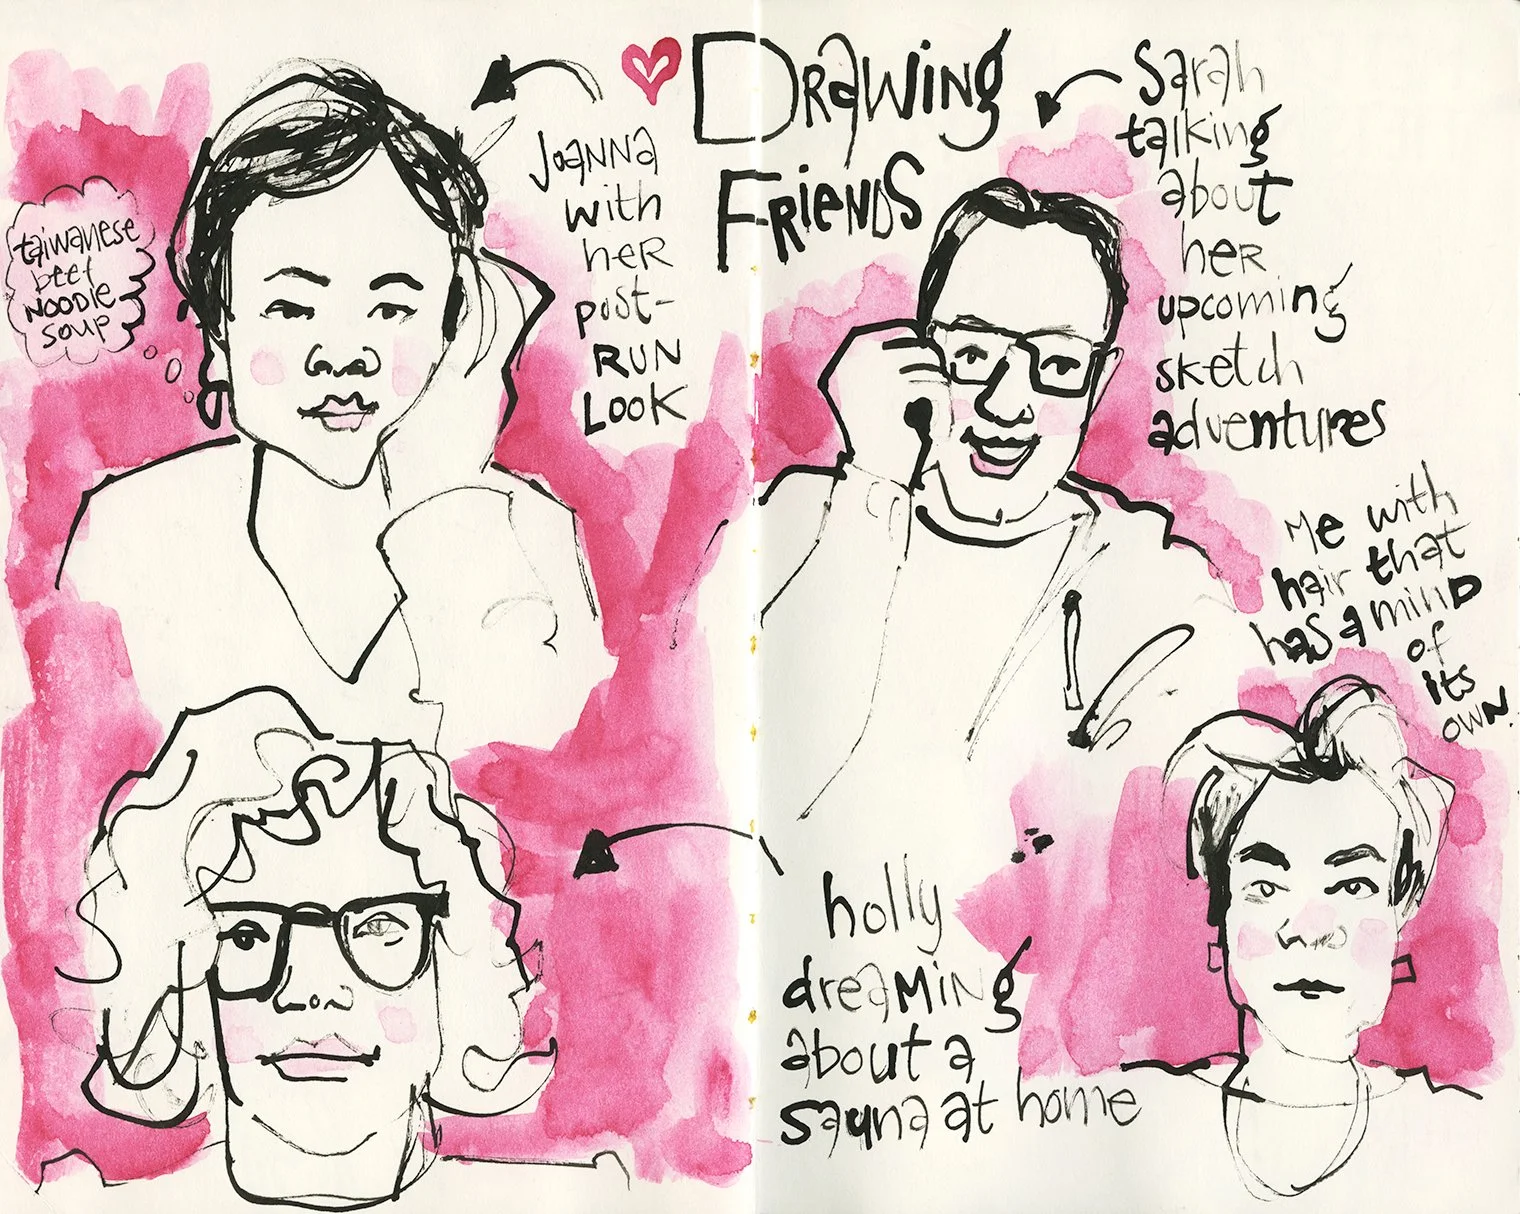 Drawing
Friends
Joanna
with
her
post-
run
look
taiwanese
beef
noodle
soup
Sarah
talking
about
her
upcoming
sketch
adventures
Me with
hair that
has a mind
of
its
own.
holly
dreaming
about a
sauna at home